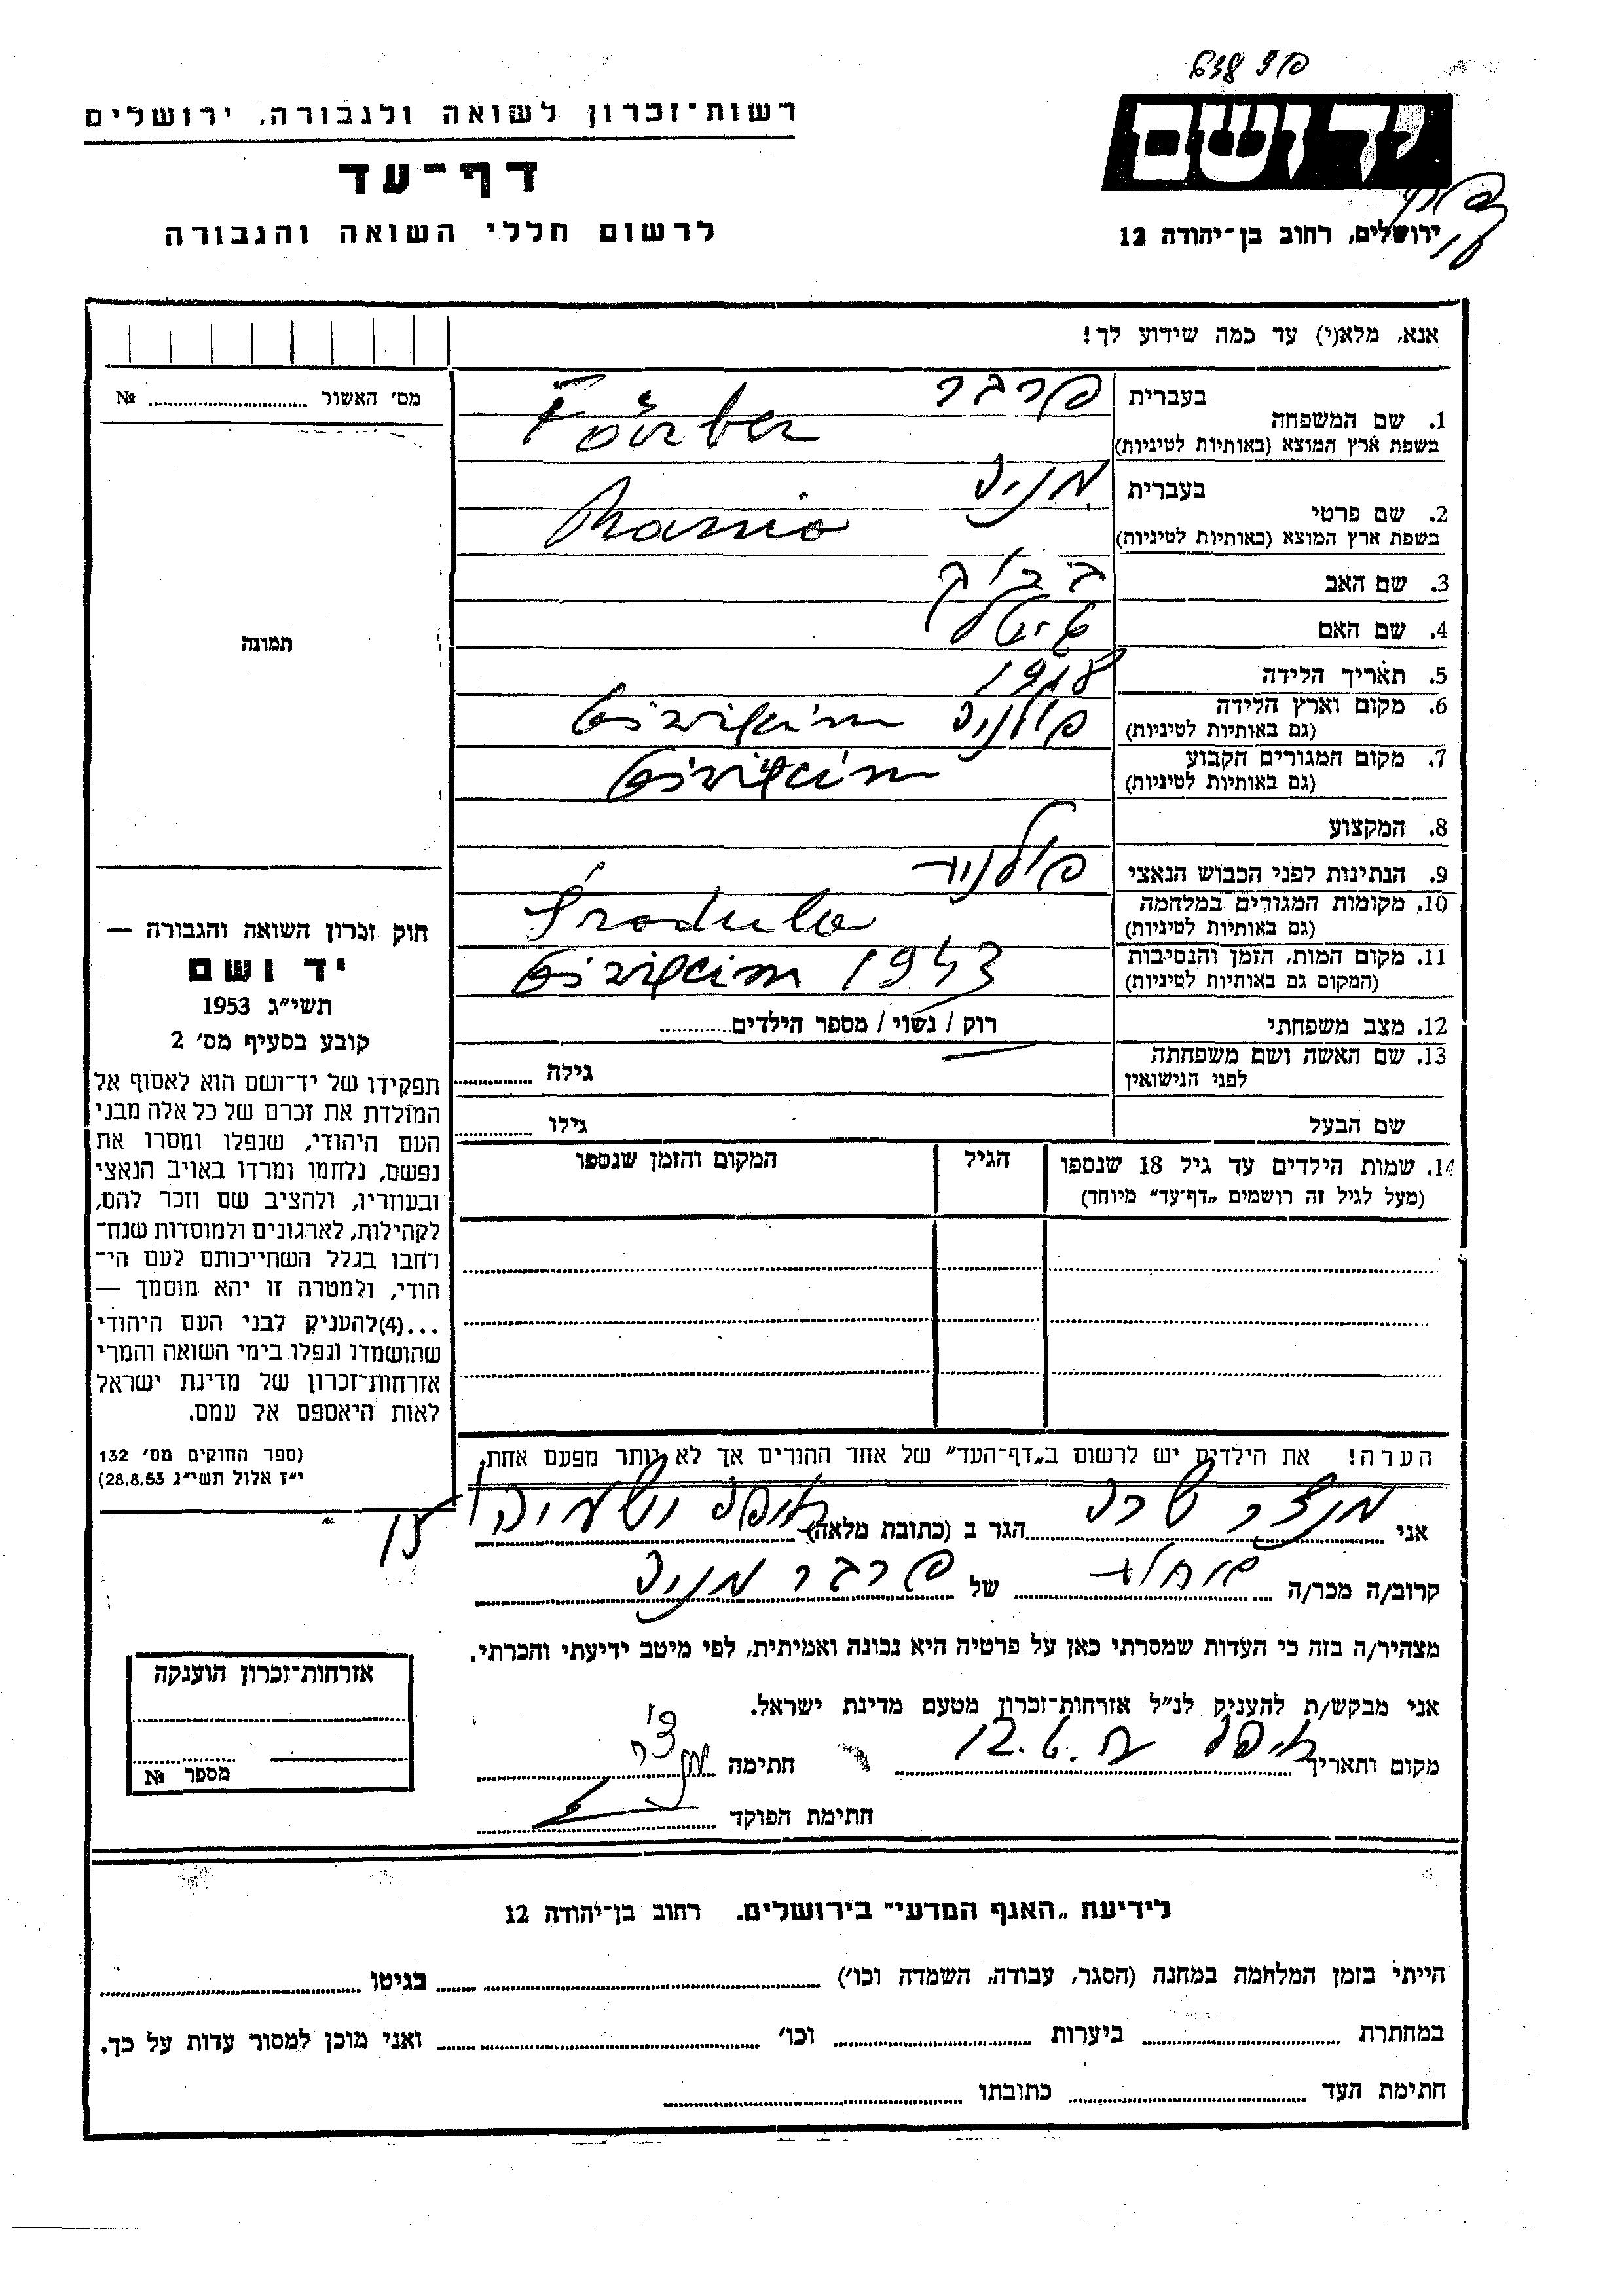 יד ושם
ירושלים, רחוב בן־יהודה 12
רשות־זכרון לשואה ולגבורה, ירושלים
דף־עד
לרשום חללי השואה והגבורה
אנא, מלא(י) עד כמה שידוע לך!
מס׳ האשור № ........
1. שם המשפחה
בעברית פרבר
בשפת ארץ המוצא (באותיות לטיניות) Färber
2. שם פרטי
בעברית מניה
בשפת ארץ המוצא (באותיות לטיניות) Mania
3. שם האב
4. שם האם
5. תאריך הלידה 1918
6. מקום וארץ הלידה פולניה
(גם באותיות לטיניות)
7. מקום המגורים הקבוע
(גם באותיות לטיניות)
8. המקצוע
9. הנתינות לפני הכבוש הנאצי
10. מקומות המגורים במלחמה Środula
(גם באותיות לטיניות)
11. מקום המות, הזמן והנסיבות 1943
(המקום גם באותיות לטיניות)
12. מצב משפחתי רוק / נשוי / מספר הילדים........
13. שם האשה ושם משפחתה גילה ........
לפני הנישואין
שם הבעל גילו ........
14. שמות הילדים עד גיל 18 שנספו הגיל המקום והזמן שנספו
(מעל לגיל זה רושמים „דף־עד״ מיוחד)
תמונה
חוק זכרון השואה והגבורה —
יד ושם
תשי״ג 1953
קובע בסעיף מס׳ 2
תפקידו של יד־ושם הוא לאסוף אל
המולדת את זכרם של כל אלה מבני
העם היהודי, שנפלו ומסרו את
נפשם, נלחמו ומרדו באויב הנאצי
ובעוזריו, ולהציב שם וזכר להם,
לקהילות, לארגונים ולמוסדות שנח־
רחבו בגלל השתייכותם לעם הי־
הודי, ולמטרה זו יהא מוסמך —
...(4)להעניק לבני העם היהודי
שהושמדו ונפלו בימי השואה והמרי
אזרחות־זכרון של מדינת ישראל
לאות היאספם אל עמם.
(ספר החוקים מס׳ 132
י״ז אלול תשי״ג 28.8.53)
הערה! את הילדים יש לרשום ב„דף־העד״ של אחד ההורים אך לא יותר מפעם אחת.
אני מנצר שרה הגר ב (כתובת מלאה) חיפה
קרוב/ה מכר/ה של פרבר מניה
מצהיר/ה בזה כי העדות שמסרתי כאן על פרטיה היא נכונה ואמיתית, לפי מיטב ידיעתי והכרתי.
אני מבקש/ת להעניק לנ״ל אזרחות־זכרון מטעם מדינת ישראל.
מקום ותאריך חיפה חתימה
חתימת הפוקד
אזרחות־זכרון הוענקה
מספר №
לידיעת „האגף המדעי״ בירושלים. רחוב בן־יהודה 12
הייתי בזמן המלחמה במחנה (הסגר, עבודה, השמדה וכו׳) ........ בגיטו ........
במחתרת ........ ביערות ........ וכו׳ ........ ואני מוכן למסור עדות על כך.
חתימת העד ........ כתובתו ........